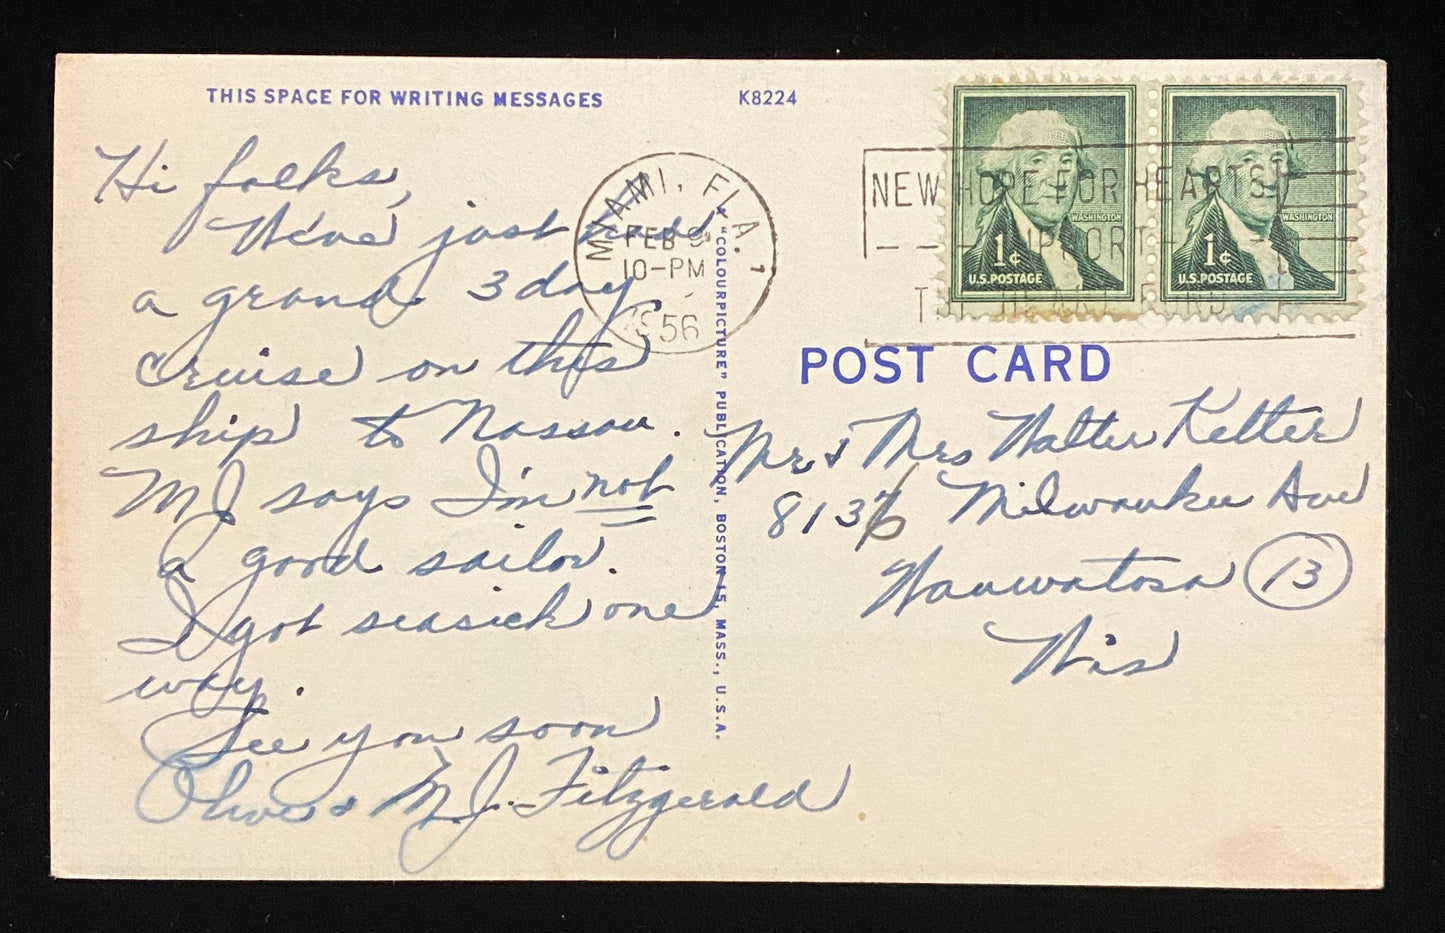 THIS SPACE FOR WRITING MESSAGES
K8224
Hi folks,
We've just had
a grand 3 day
cruise on this
ship to Nassau.
M J says I'm not
a good sailor.
I got seasick one
way.
See you soon
Olive & M. J. Fitzgerald
MIAMI, FLA. 1
FEB 9
10-PM
1956
"COLOURPICTURE" PUBLICATION, BOSTON 15, MASS., U.S.A.
NEW HOPE FOR HEARTS
SUPPORT
THE HEART FUND
WASHINGTON
1¢
U.S. POSTAGE
WASHINGTON
1¢
U.S. POSTAGE
POST CARD
Mr & Mrs Walter Ketter
Milwaukee Ave
Wauwatosa 13
Wis